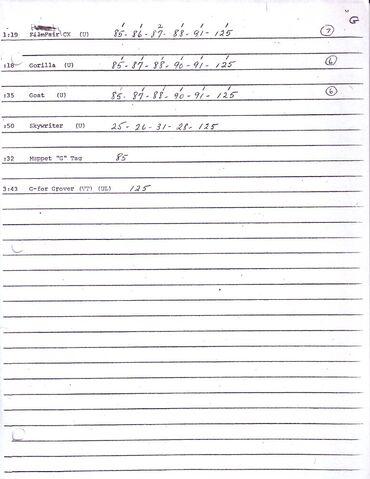 G
1:19 FilmFair CX (U) 85 - 86 - 87 - 88 - 91 - 125 7
:18 Gorilla (U) 85 - 87 - 88 - 90 - 91 - 125 6
:35 Goat (U) 85 - 87 - 88 - 90 - 91 - 125 6
:50 Skywriter (U) 25 - 26 - 31 - 28 - 125
:32 Muppet "G" Tag 85
3:43 G-for Grover (VT) (UL) 125